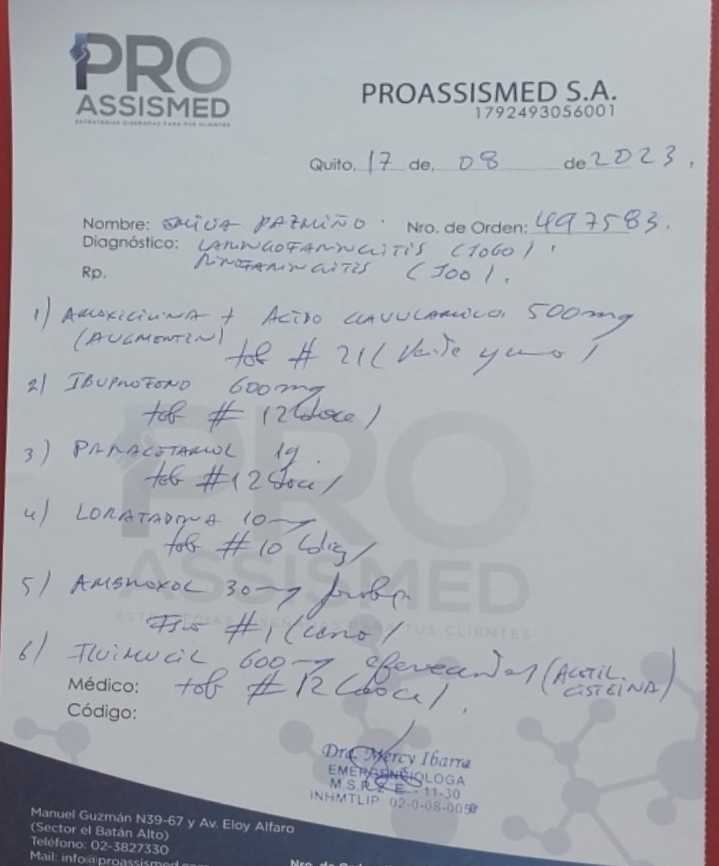 PRO
ASSISMED
ESTRATEGIAS DISEÑADAS PARA TUS CLIENTES
PROASSISMED S.A.
1792493056001
Quito, 17 de, 08 de 2023.
Nombre: PAZMIÑO. Nro. de Orden: 497583.
Diagnóstico: LARINGOFARINGITIS (J060).
RINOFARINGITIS (J00).
Rp.
1) AMOXICILINA + ACIDO CLAVULANICO 500mg
(AUGMENTIN)
tab # 21 (veinte y uno)
2) IBUPROFENO 600mg
tab # 12 (doce)
3) PARACETAMOL 1g.
tab # 12 (doce)
4) LORATADINA 10mg
tab # 10 (diez)
5) AMBROXOL 30mg jarabe
Fco # 1 (uno)
6) FLUIMUCIL 600mg efervecentes (ACETIL.
CISTEINA)
tab # 12 (doce).
Médico:
Código:
Dra. Mercy Ibarra
EMERGENCIOLOGA
M.S.P. 11-30
INHMTLIP 02-0-08-005
Manuel Guzmán N39-67 y Av. Eloy Alfaro
(Sector el Batán Alto)
Teléfono: 02-3827330
Mail: info@proassismed
Nro. de